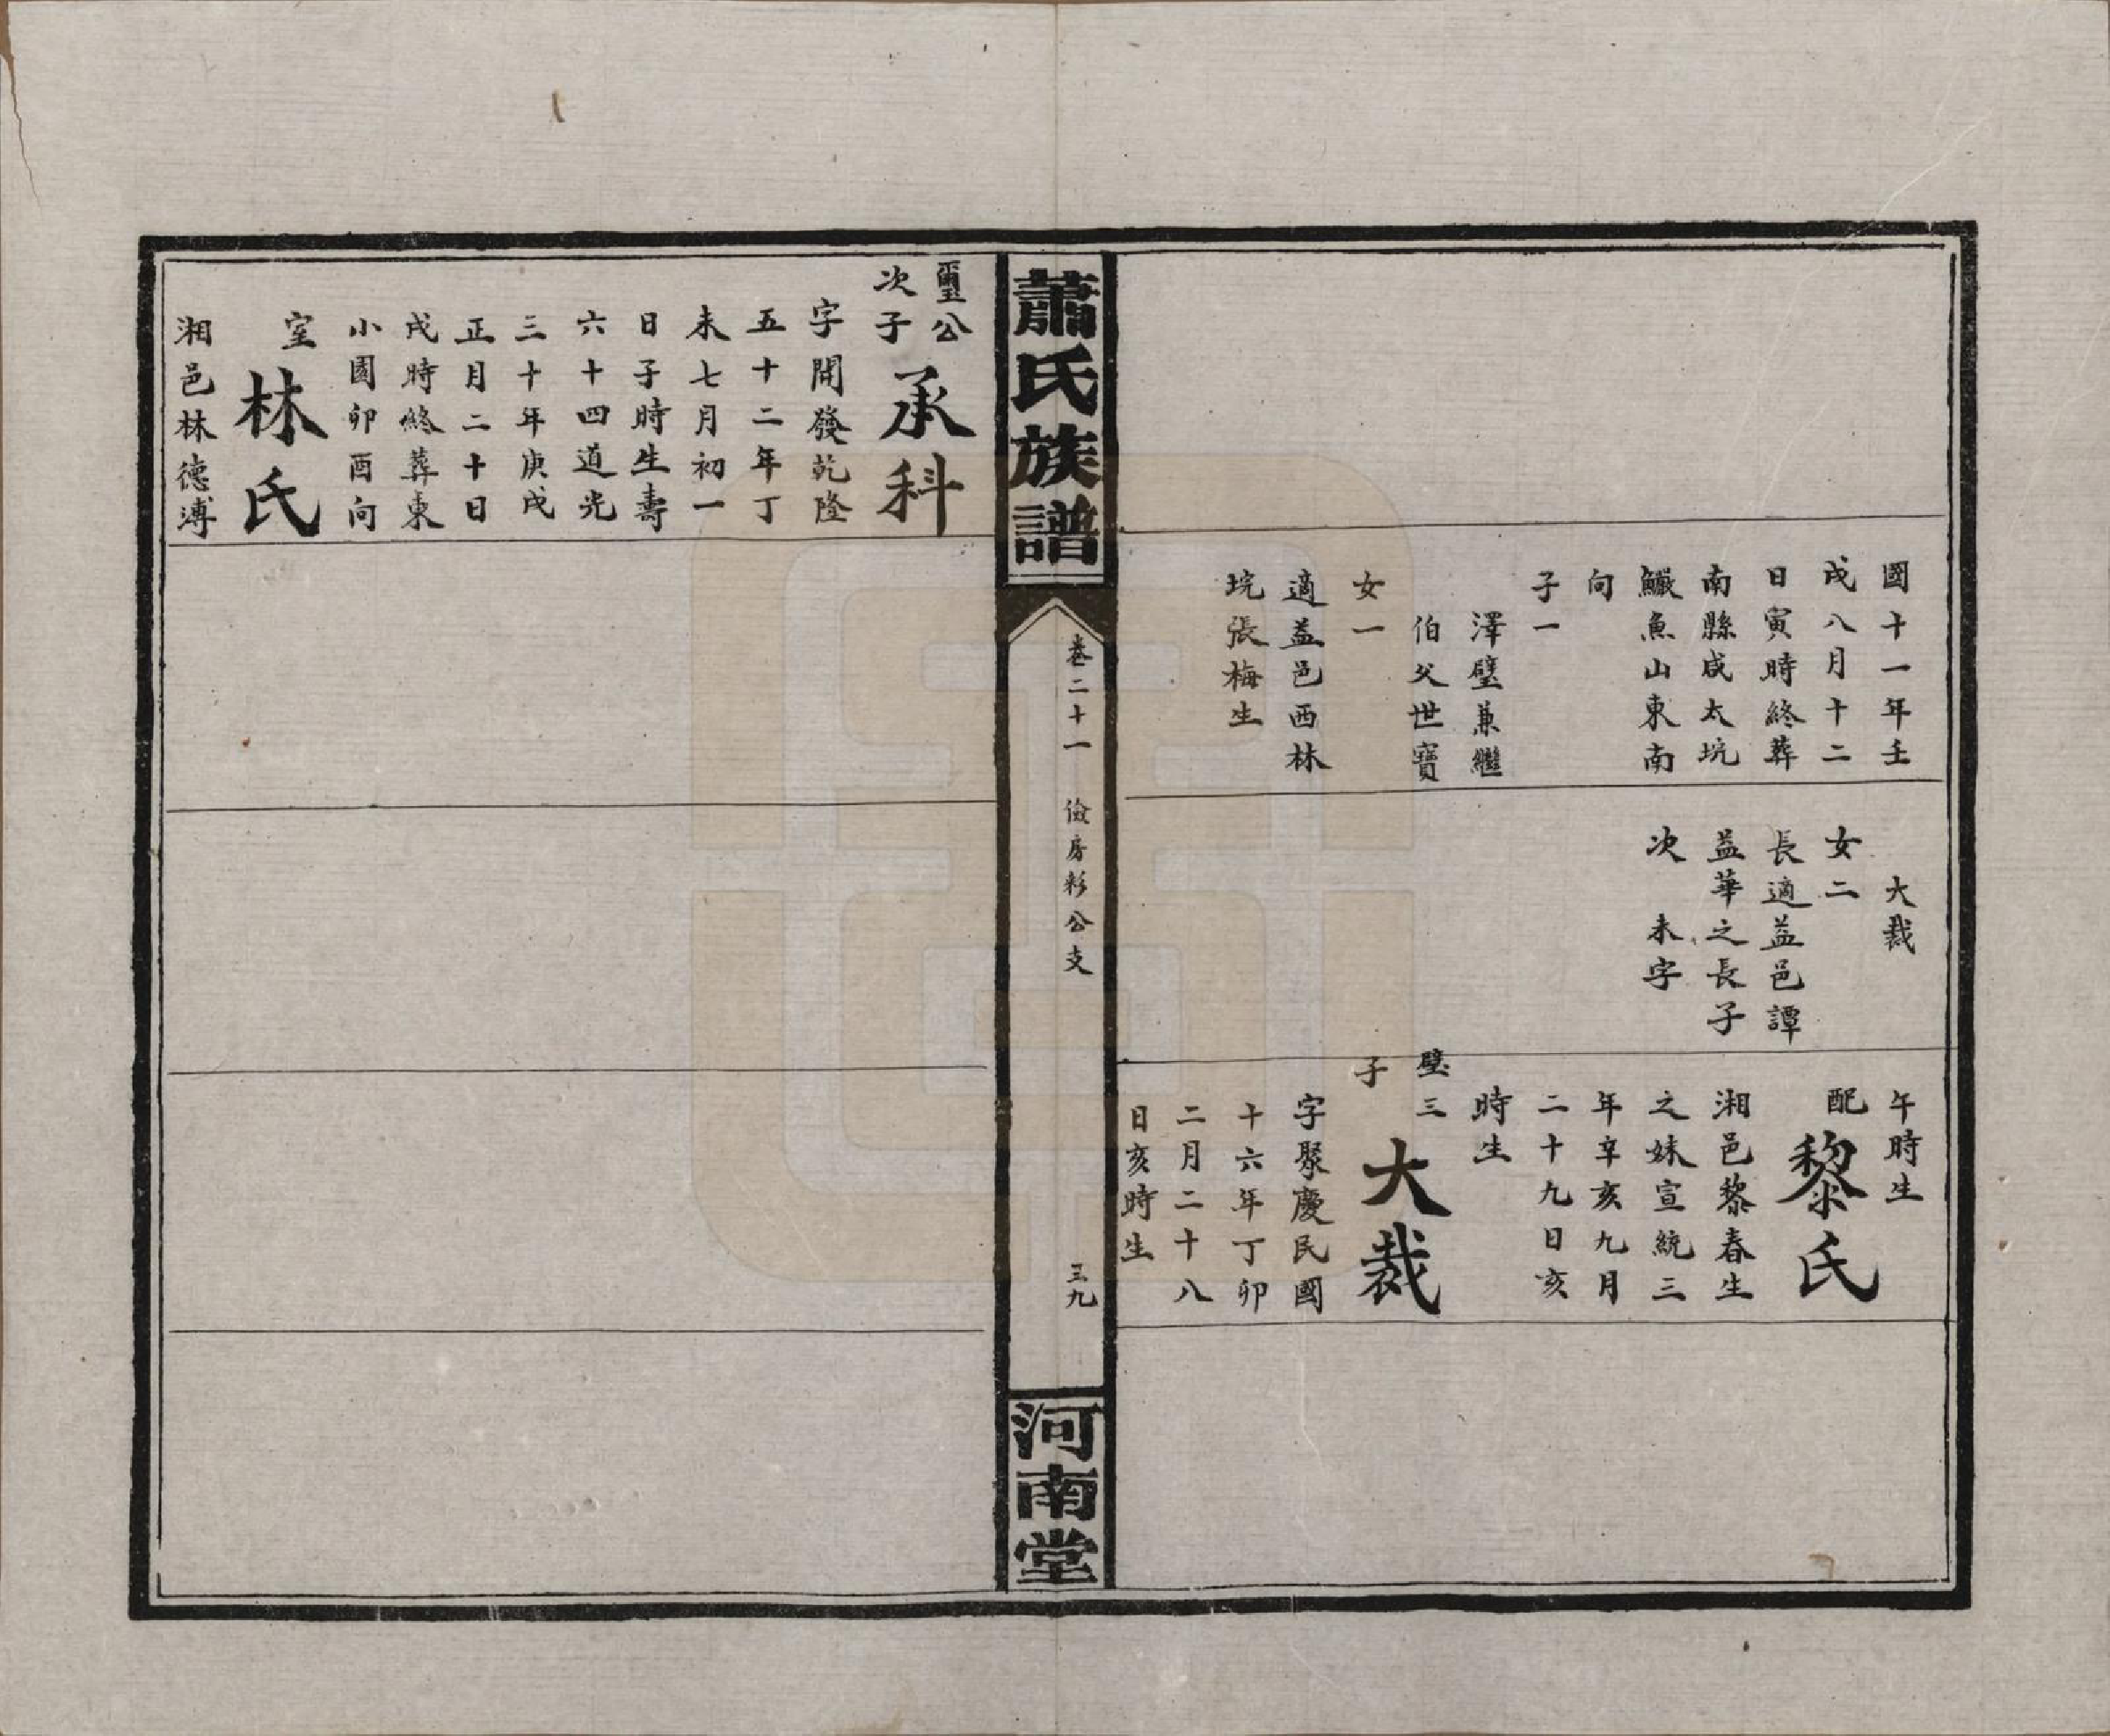 國十一年壬
戌八月十二
日寅時終葬
南縣咸太垸
鱖魚山東南
向
子一
澤璧兼繼
伯父世寶
女一
適益邑西林
垸張梅生
大裁
女二
長適益邑譚
益華之長子
次　未字
午時生
配黎氏
湘邑黎春生
之妹宣統三
年辛亥九月
二十九日亥
時生
璧三
子
大裁
字聚慶民國
十六年丁卯
二月二十八
日亥時生
蕭氏族譜
卷二十一　儉房彩公支　三九
河南堂
璽公
次子
承科
字開發乾隆
五十二年丁
未七月初一
日子時生壽
六十四道光
三十年庚戌
正月二十日
戌時終葬東
小園卯酉向
室林氏
湘邑林德溥